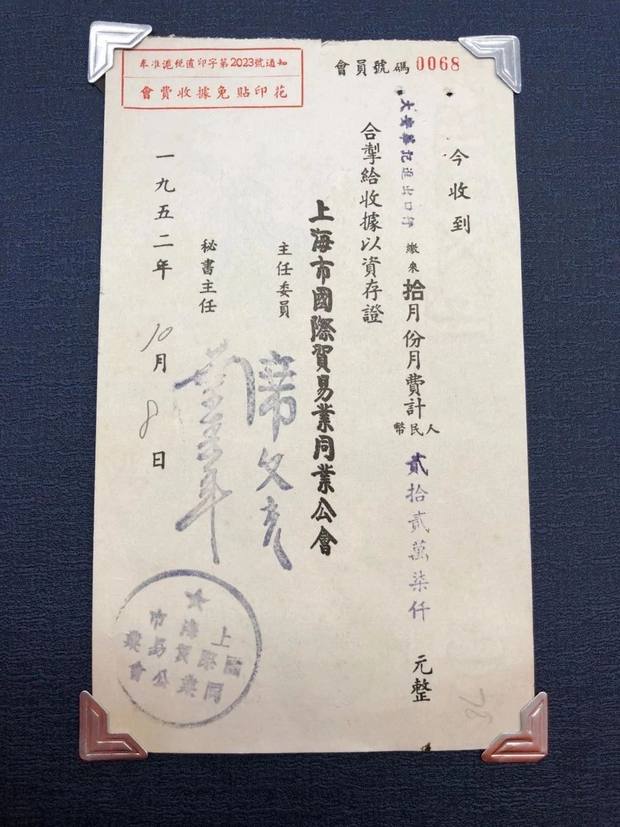 奉准滬稅直印字第2023號通知
會費收據免貼印花
會員號碼 0068
今收到
大安華記進出口行 繳來拾月份月費計人民幣貳拾貳萬柒仟元整
合掣給收據以資存證
上海市國際貿易業同業公會
主任委員
秘書主任
一九五二年10月8日
上海市國際貿易業同業公會
78